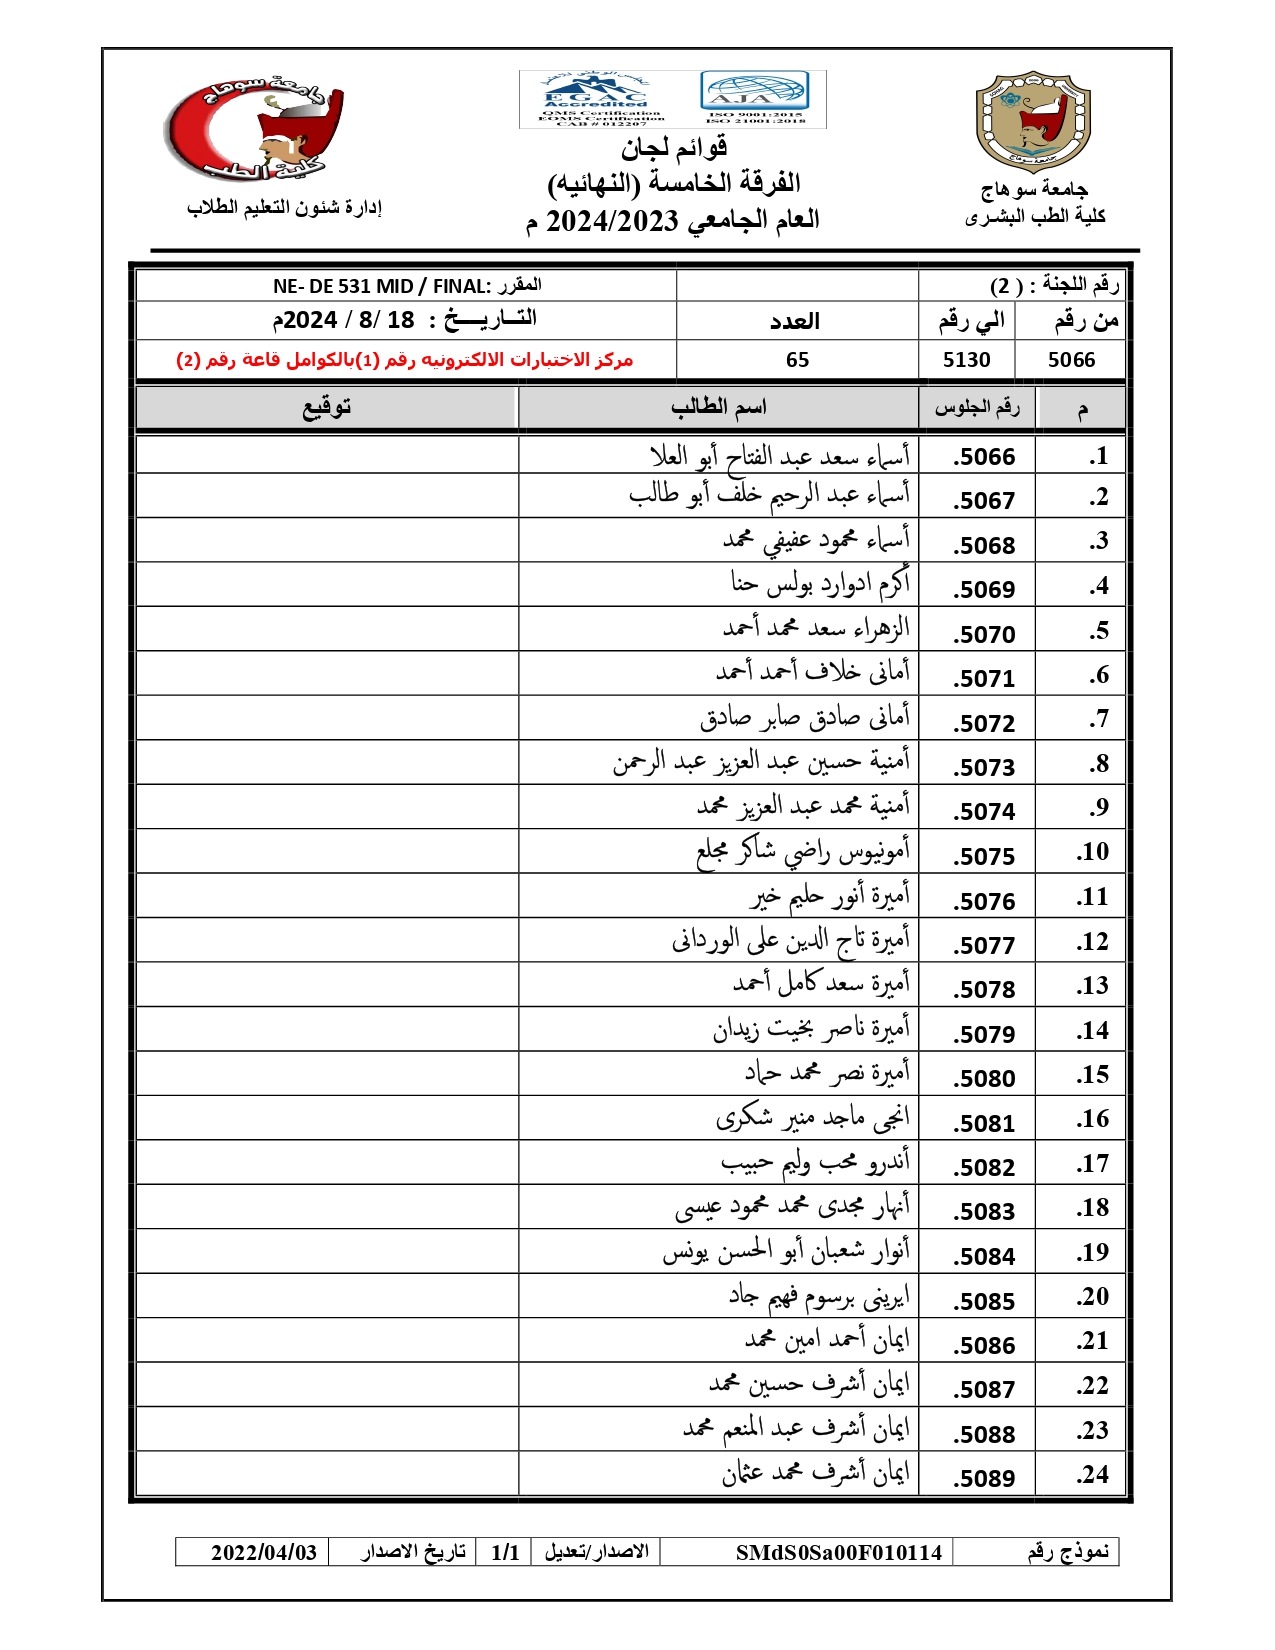 جامعة سوهاج
كلية الطب البشرى
المجلس الوطني للاعتماد
EGAC
Accredited
QMS Certification
EOMS Certification
CAB # 012207
AJA
ISO 9001:2015
ISO 21001:2018
قوائم لجان
الفرقة الخامسة (النهائيه)
العام الجامعي 2024/2023 م
جامعة سوهاج
كلية الطب
إدارة شئون التعليم الطلاب
رقم اللجنة : ( 2) المقرر :NE- DE 531 MID / FINAL
من رقم الي رقم العدد التــاريـــخ : 18 /8 / 2024م
5066 5130 65 مركز الاختبارات الالكترونيه رقم (1)بالكوامل قاعة رقم (2)
م رقم الجلوس اسم الطالب توقيع
1. 5066. أسماء سعد عبد الفتاح أبو العلا
2. 5067. أسماء عبد الرحيم خلف أبو طالب
3. 5068. أسماء محمود عفيفي محمد
4. 5069. أكرم ادوارد بولس حنا
5. 5070. الزهراء سعد محمد أحمد
6. 5071. أمانى خلاف أحمد أحمد
7. 5072. أمانى صادق صابر صادق
8. 5073. أمنية حسين عبد العزيز عبد الرحمن
9. 5074. أمنية محمد عبد العزيز محمد
10. 5075. أمونيوس راضي شاكر مجلع
11. 5076. أميرة أنور حليم خير
12. 5077. أميرة تاج الدين على الوردانى
13. 5078. أميرة سعد كامل أحمد
14. 5079. أميرة ناصر بخيت زيدان
15. 5080. أميرة نصر محمد حماد
16. 5081. انجى ماجد منير شكرى
17. 5082. أندرو محب وليم حبيب
18. 5083. أنهار مجدى محمد محمود عيسى
19. 5084. أنوار شعبان أبو الحسن يونس
20. 5085. ايرينى برسوم فهيم جاد
21. 5086. ايمان أحمد امين محمد
22. 5087. ايمان أشرف حسين محمد
23. 5088. ايمان أشرف عبد المنعم محمد
24. 5089. ايمان أشرف محمد عثمان
نموذج رقم SMdS0Sa00F010114 الاصدار/تعديل 1/1 تاريخ الاصدار 2022/04/03